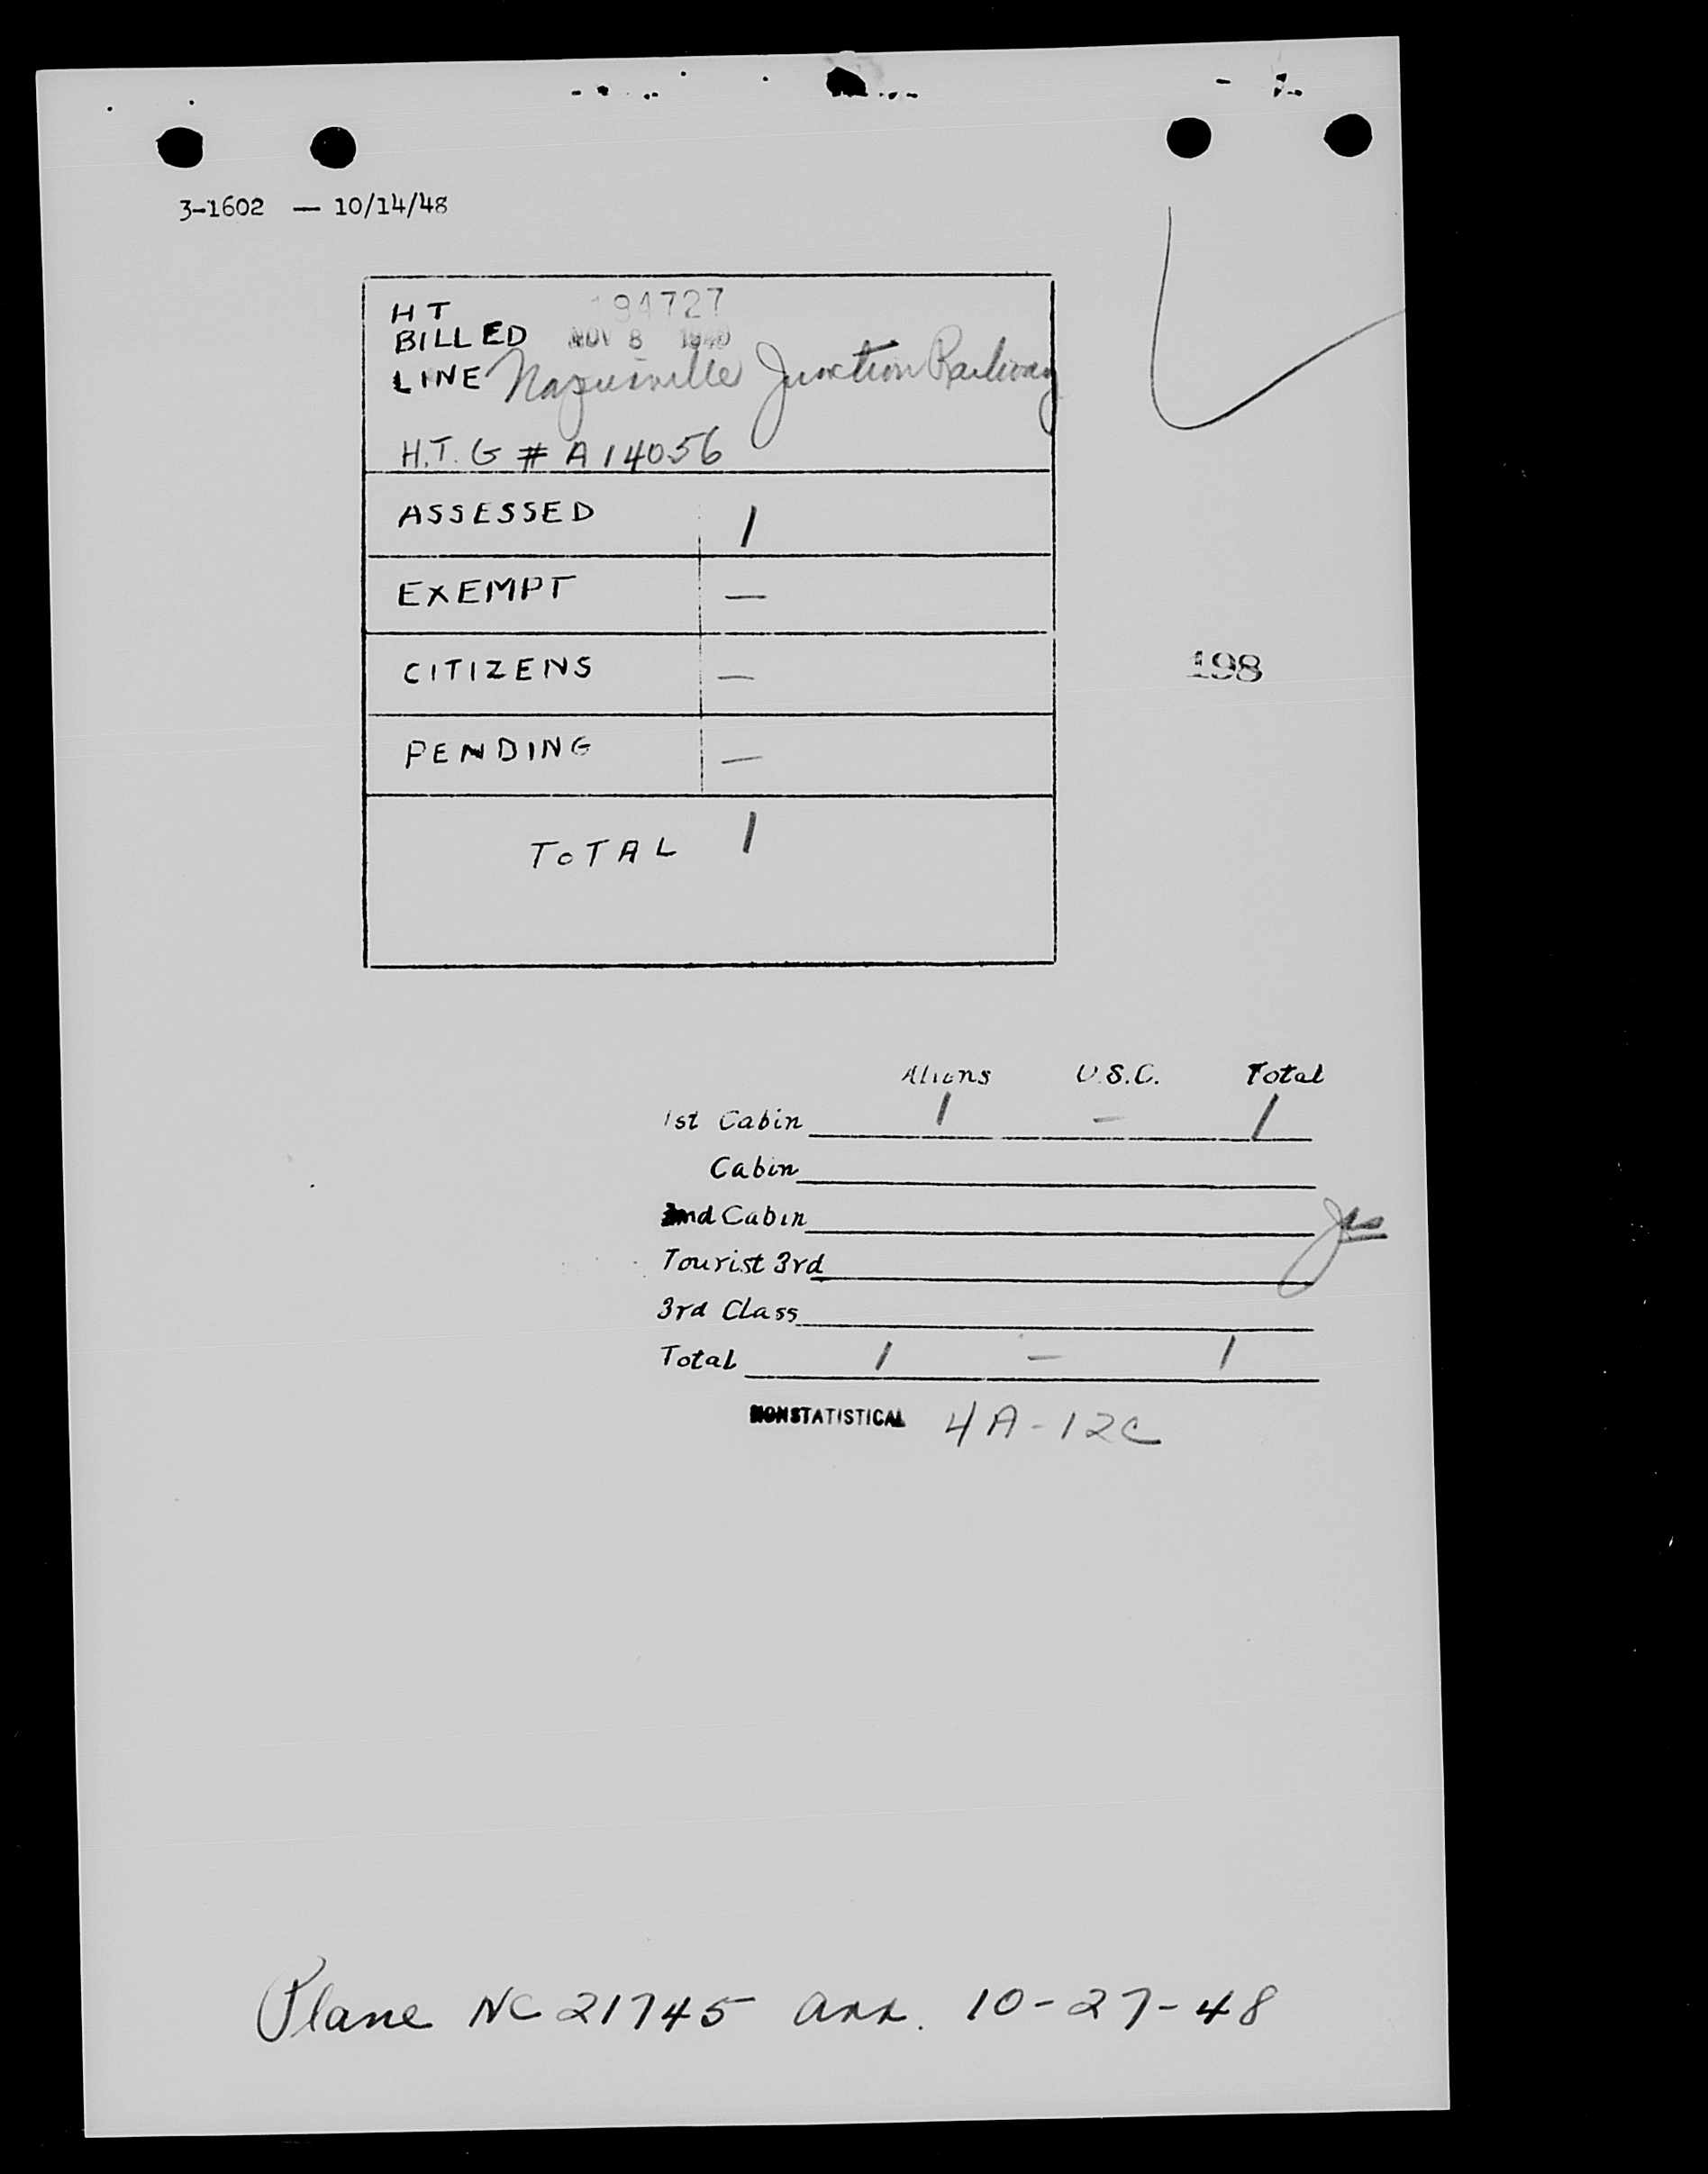 3-1602 — 10/14/48
HT 94727
BILLED NOV 8
LINE Junction Railway
H.T. G # A 14056
ASSESSED 1
EXEMPT —
CITIZENS —
198
PENDING —
TOTAL 1
Aliens U.S.C. Total
1st Cabin 1 — 1
Cabin
2nd Cabin
Tourist 3rd
3rd Class
Total 1 — 1
NONSTATISTICAL 4A-12C
Plane NC 21745 arr. 10-27-48